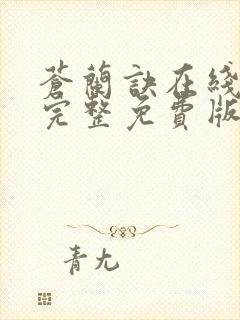 蒼蘭訣在綫
完整免費版
青尢